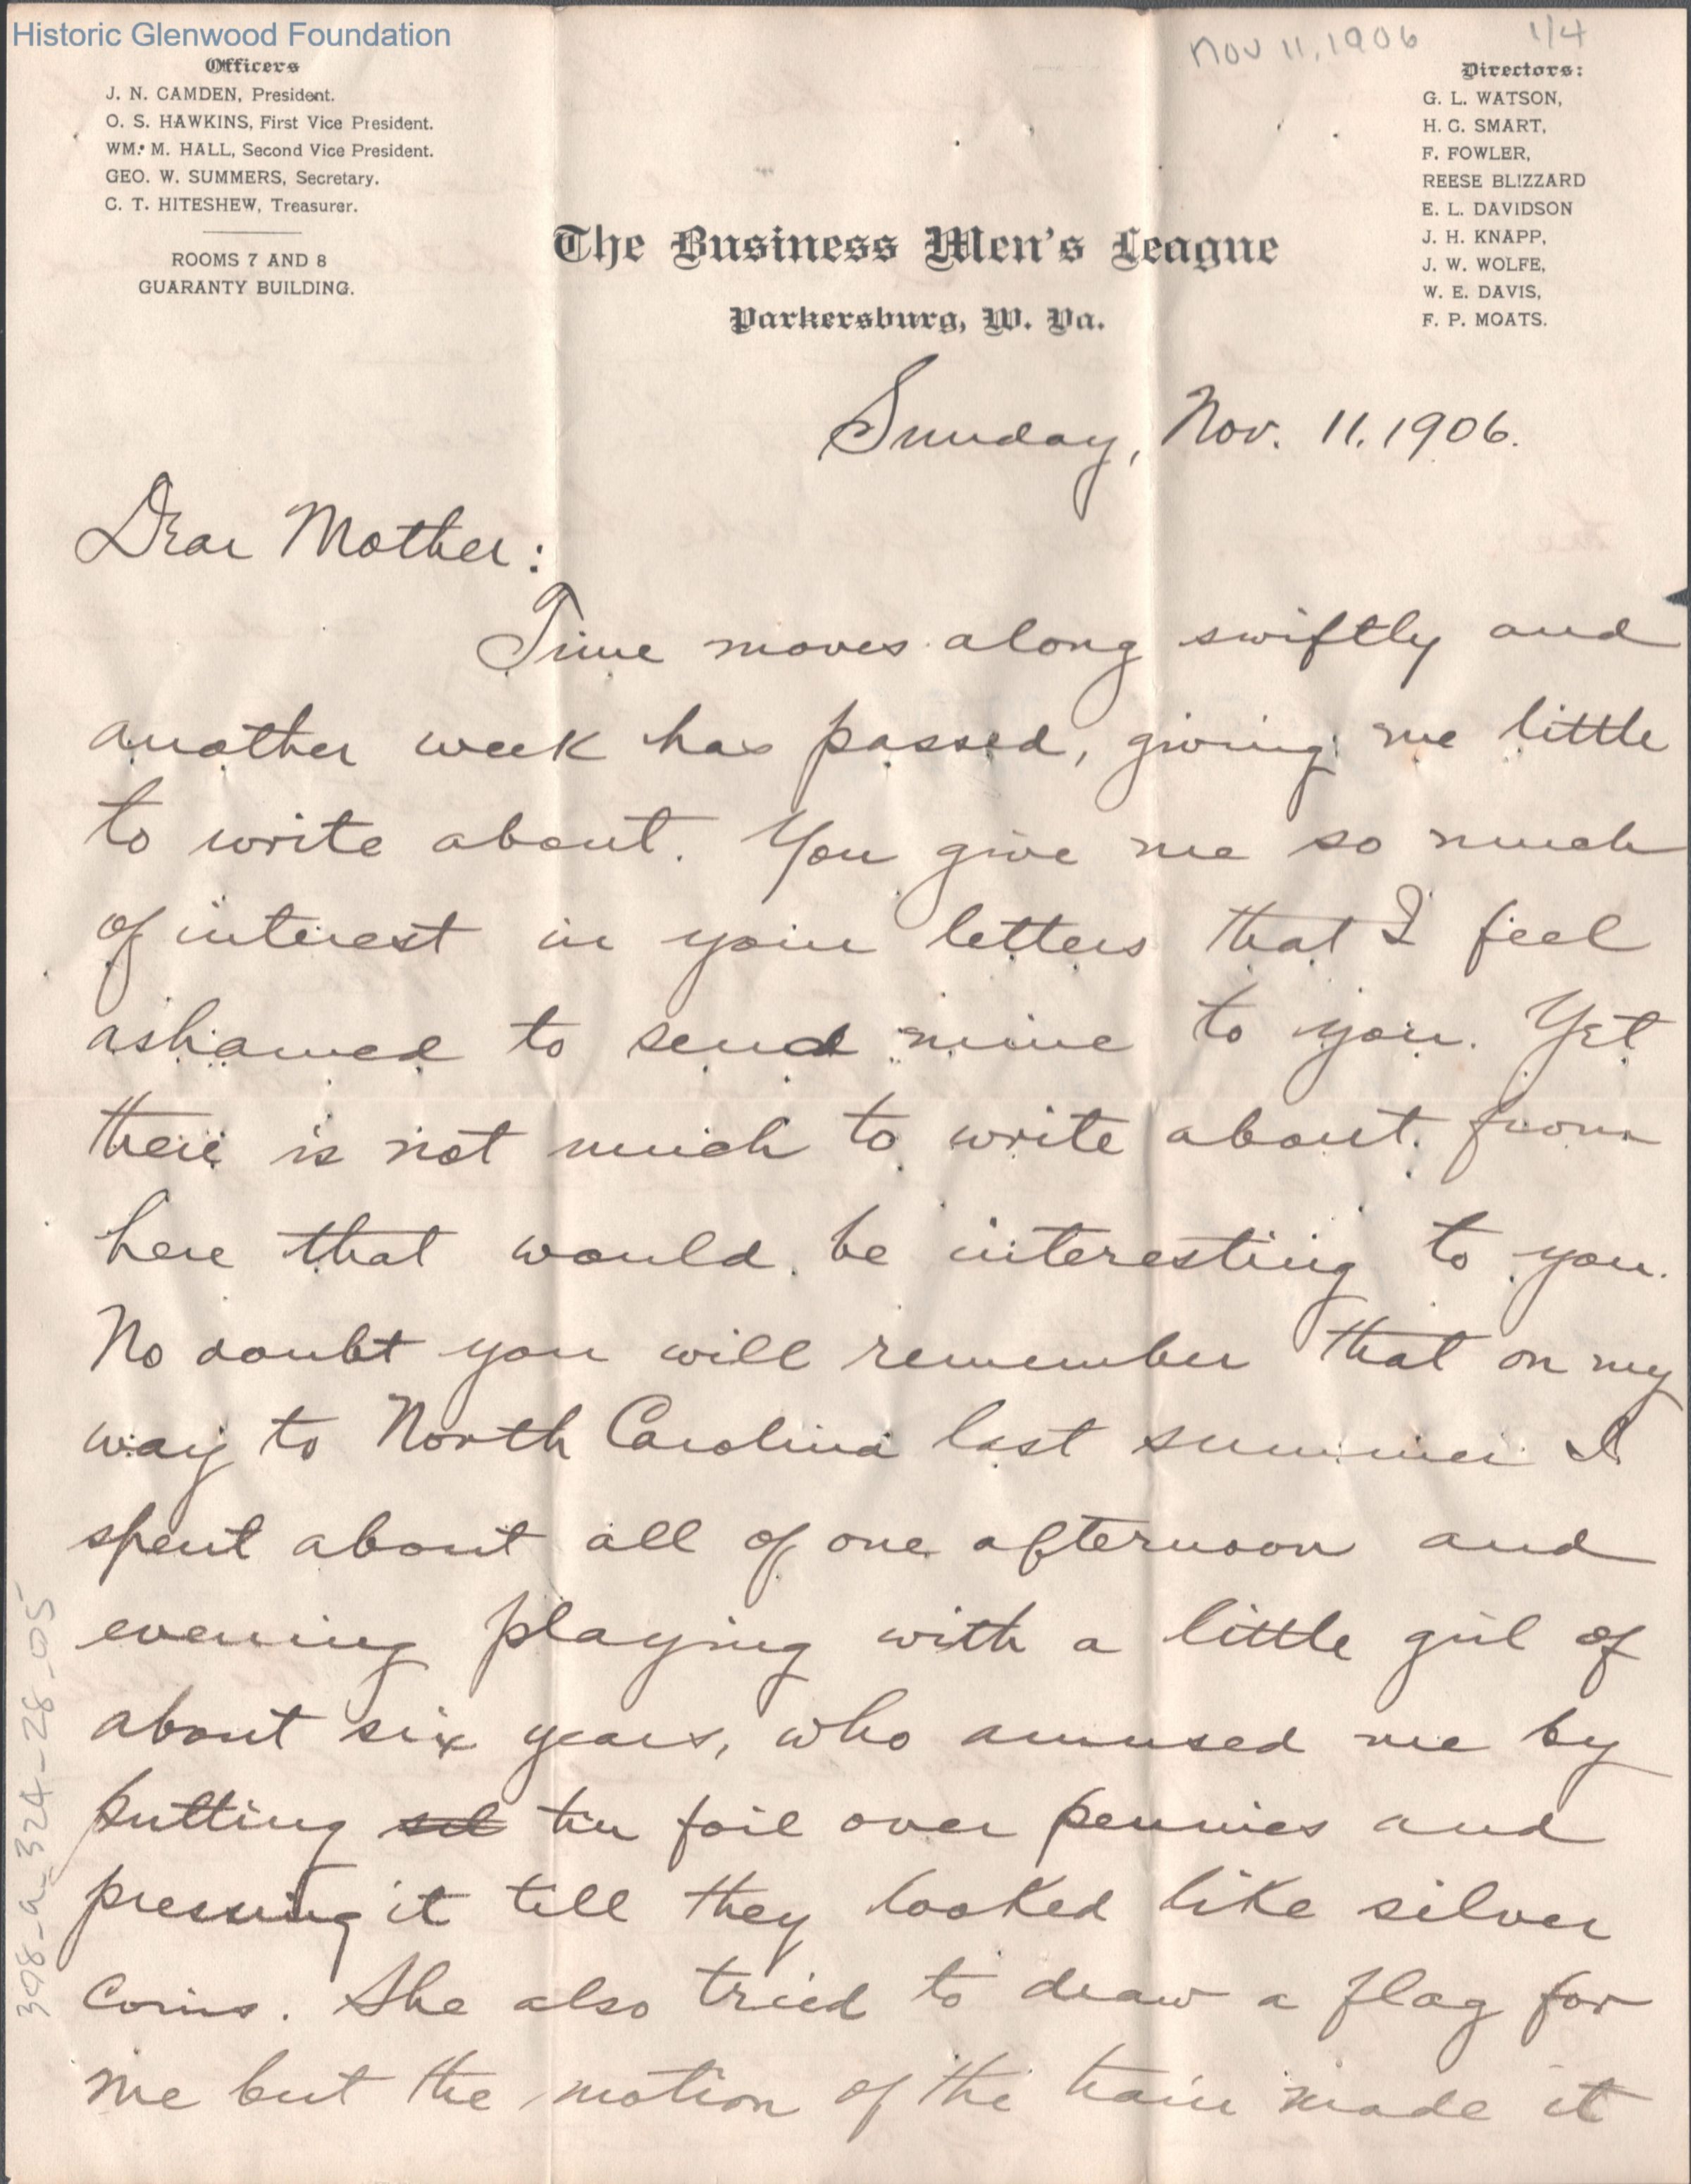 Historic Glenwood Foundation
Nov 11, 1906
1/4
Officers
J. N. CAMDEN, President.
O. S. HAWKINS, First Vice President.
WM. M. HALL, Second Vice President.
GEO. W. SUMMERS, Secretary.
C. T. HITESHEW, Treasurer.
ROOMS 7 AND 8
GUARANTY BUILDING.
Directors:
G. L. WATSON,
H. C. SMART,
F. FOWLER,
REESE BLIZZARD
E. L. DAVIDSON
J. H. KNAPP,
J. W. WOLFE,
W. E. DAVIS,
F. P. MOATS.
The Business Men's League
Parkersburg, W. Va.
Sunday, Nov. 11. 1906.
Dear Mother:
Time moves along swiftly and
another week has passed, giving me little
to write about. You give me so much
of interest in your letters that I feel
ashamed to send mine to you. Yet
there is not much to write about from
here that would be interesting to you.
No doubt you will remember that on my
way to North Carolina last summer I
spent about all of one afternoon and
evening playing with a little girl of
about six years, who amused me by
putting sil tin foil over pennies and
pressing it till they looked like silver
coins. She also tried to draw a flag for
me but the motion of the train made it
398-a-324-28-05